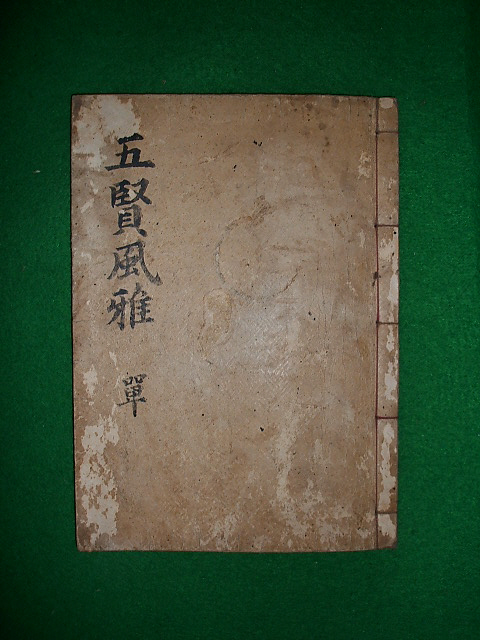 五賢風雅 單